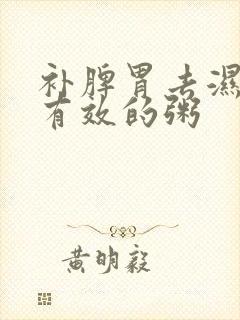 补脾胃去濕
有效的粥
黄明毅